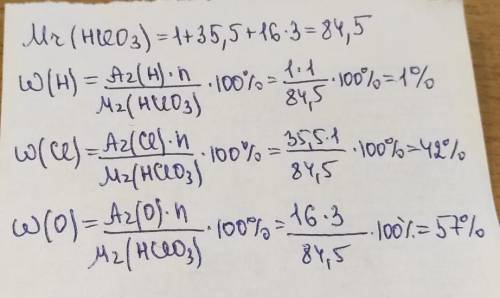 Mr(HClO3)=1+35,5+16·3=84,5
W(H)=Ar(H)·n/Mr(HClO3)·100%=1·1/84,5·100%=1%
W(Cl)=Ar(Cl)·n/Mr(HClO3)·100%=35,5·1/84,5·100%=42%
W(O)=Ar(O)·n/Mr(HClO3)·100%=16·3/84,5·100%=57%